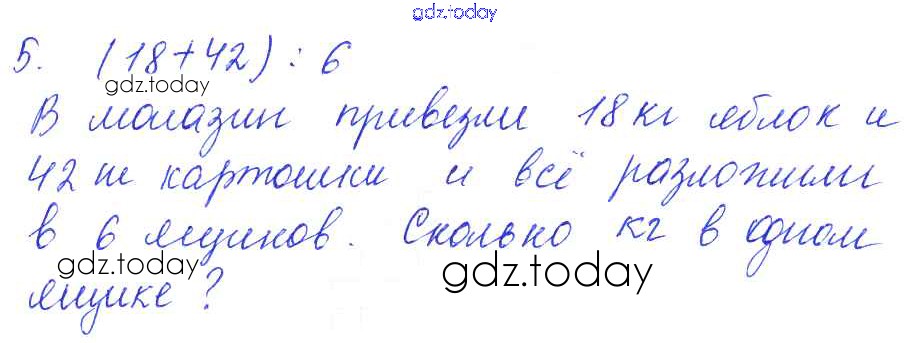 gdz.today
5. (18+42) : 6
gdz.today
В магазин привезли 18 кг яблок и
42 кг картошки и всё разложили
в 6 ящиков. Сколько кг в одном
gdz.today gdz.today
ящике?